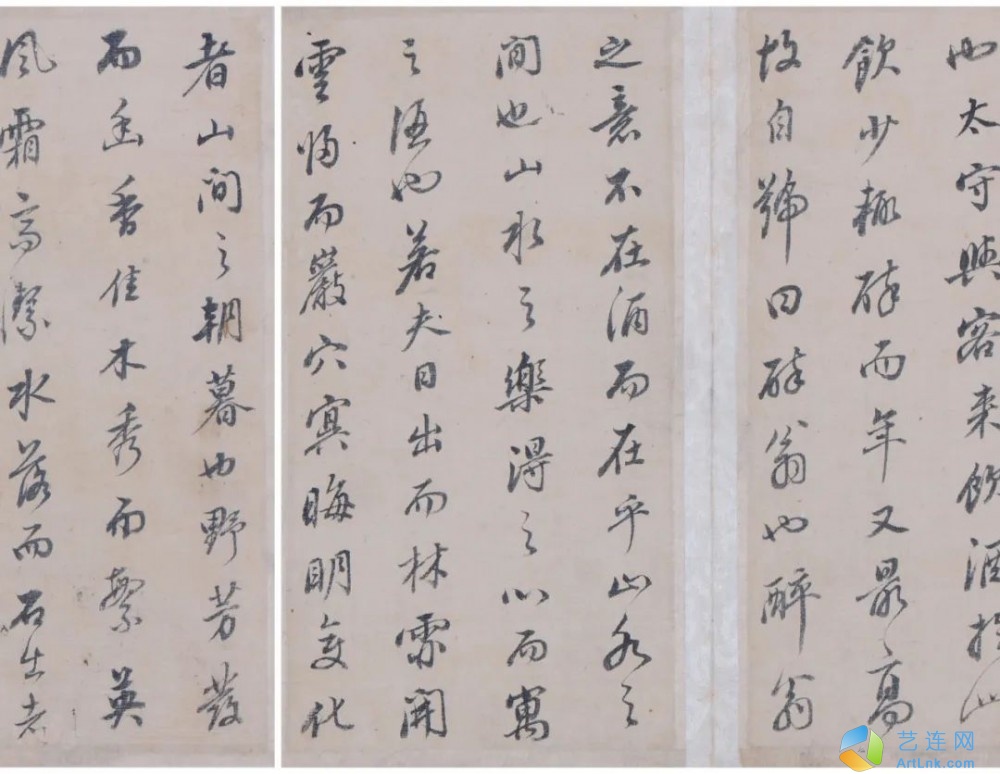 也太守與客来飲酒於此
飲少輒醉而年又最高
故自號曰醉翁也醉翁
之意不在酒而在乎山水之
間也山水之樂得之心而寓
之酒也若夫日出而林霏開
雲歸而巖穴冥晦明變化
者山間之朝暮也野芳發
而幽香佳木秀而繁英
風霜高潔水落而石出者
艺连网
ArtLnk.com